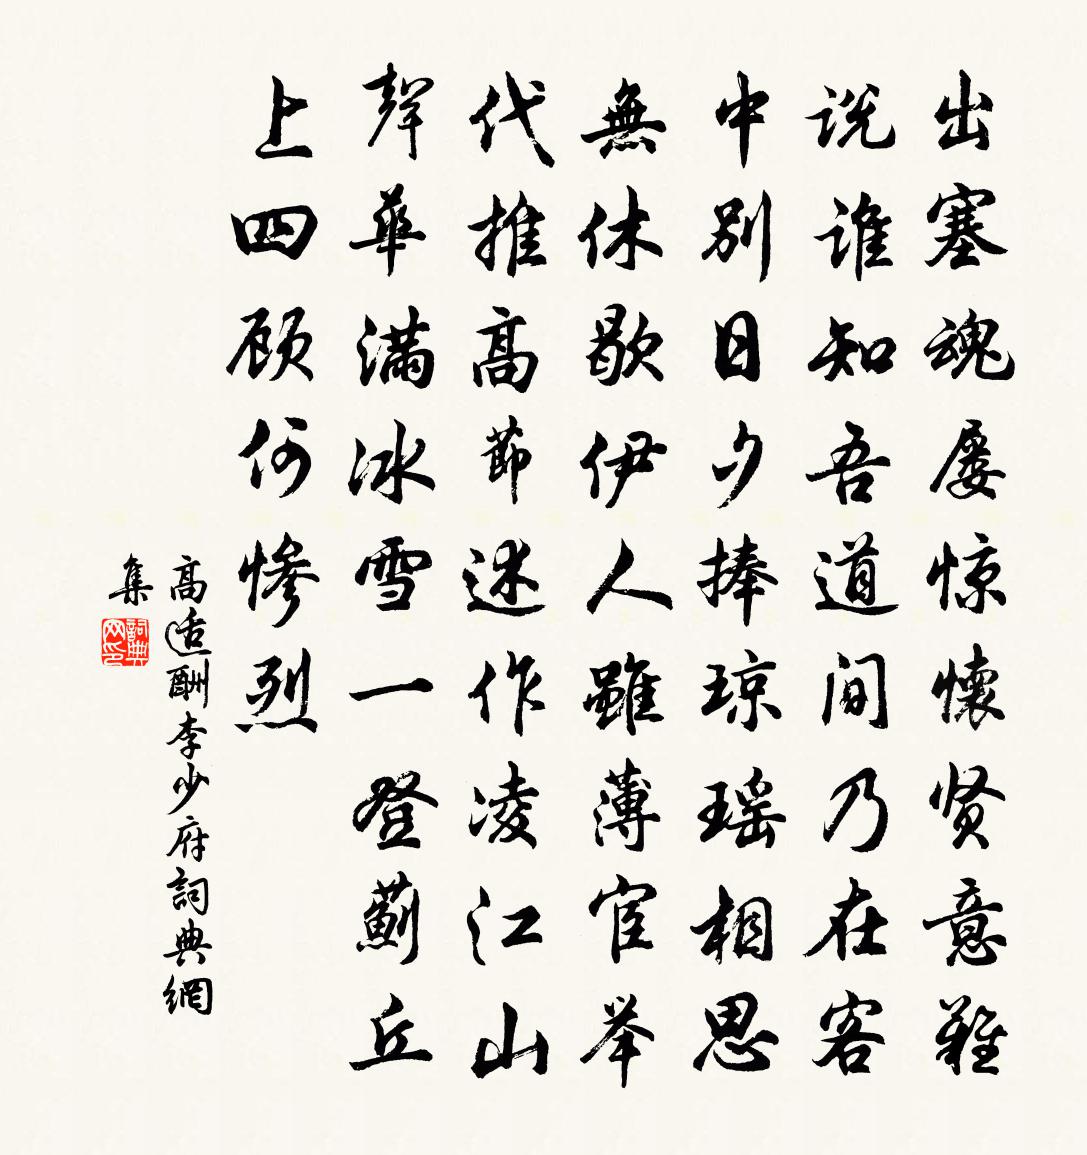 出塞魂屡惊懷贤意難
说谁知吾道间乃在客
中别日夕捧琼瑶相思
無休歇伊人雖薄宦举
代推高節述作凌江山
聲華满冰雪一登薊丘
上四顾何惨烈
高适酬李少府詞典網
集
詞典網印